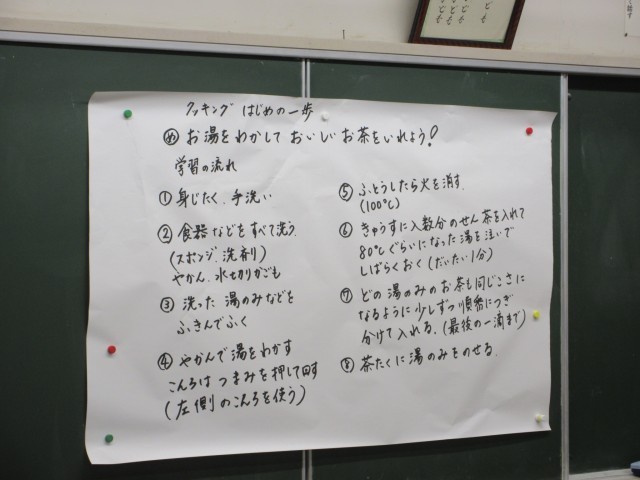 クッキング はじめの一歩
め お湯をわかして おいしい お茶をいれよう!
学習の流れ
① 身じたく、手洗い
② 食器などをすべて洗う。
(スポンジ、洗剤)
やかん、水切りかごも
③ 洗った 湯のみなどを
ふきんでふく
④ やかんで湯をわかす
こんろは つまみを押して回す
(左側のこんろを使う)
⑤ ふっとうしたら火を消す。
(100℃)
⑥ きゅうすに人数分のせん茶を入れて
80℃ぐらいになった湯を注いで
しばらくおく(だいたい1分)
⑦ どの湯のみのお茶も同じこさに
なるように少しずつ順番につぎ
分けて入れる。(最後の一滴まで)
⑧ 茶たくに湯のみをのせる。